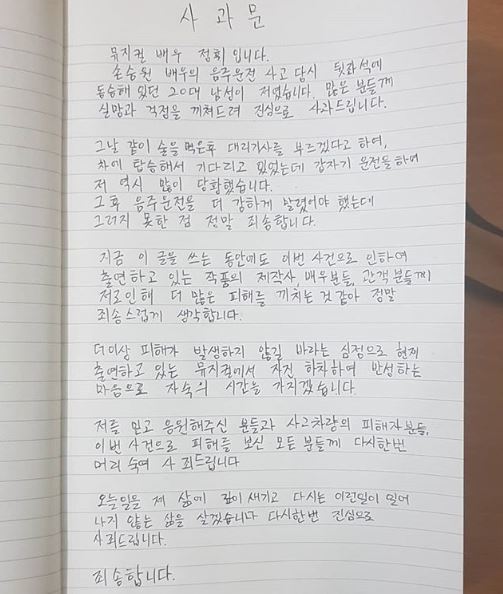 사 과 문
뮤지컬 배우 정휘 입니다.
손승원 배우의 음주운전 사고 당시 뒷좌석에
동승해 있던 20대 남성이 저였습니다. 많은 분들께
실망과 걱정을 끼쳐드려 진심으로 사과드립니다.
그날 같이 술을 먹은후 대리기사를 부르겠다고 하여,
차에 탑승해서 기다리고 있었는데 갑자기 운전을 하여
저 역시 많이 당황했습니다.
그후 음주운전을 더 강하게 말렸어야 했는데
그러지 못한 점 정말 죄송합니다.
지금 이 글을 쓰는 동안에도 이번 사건으로 인하여
출연하고 있는 작품의 제작사, 배우분들, 관객분들께
저로인해 더 많은 피해를 끼치는 것 같아 정말
죄송스럽게 생각합니다.
더이상 피해가 발생하지 않길 바라는 심정으로 현재
출연하고 있는 뮤지컬에서 자진 하차하여 반성하는
마음으로 자숙의 시간을 가지겠습니다.
저를 믿고 응원해주신 분들과 사고차량의 피해자분들,
이번 사건으로 피해를 보신 모든 분들께 다시한번
머리 숙여 사죄드립니다
오늘일을 제 삶에 깊이 새기고 다시는 이런일이 일어
나지 않는 삶을 살겠습니다 다시한번 진심으로
사죄드립니다.
죄송합니다.